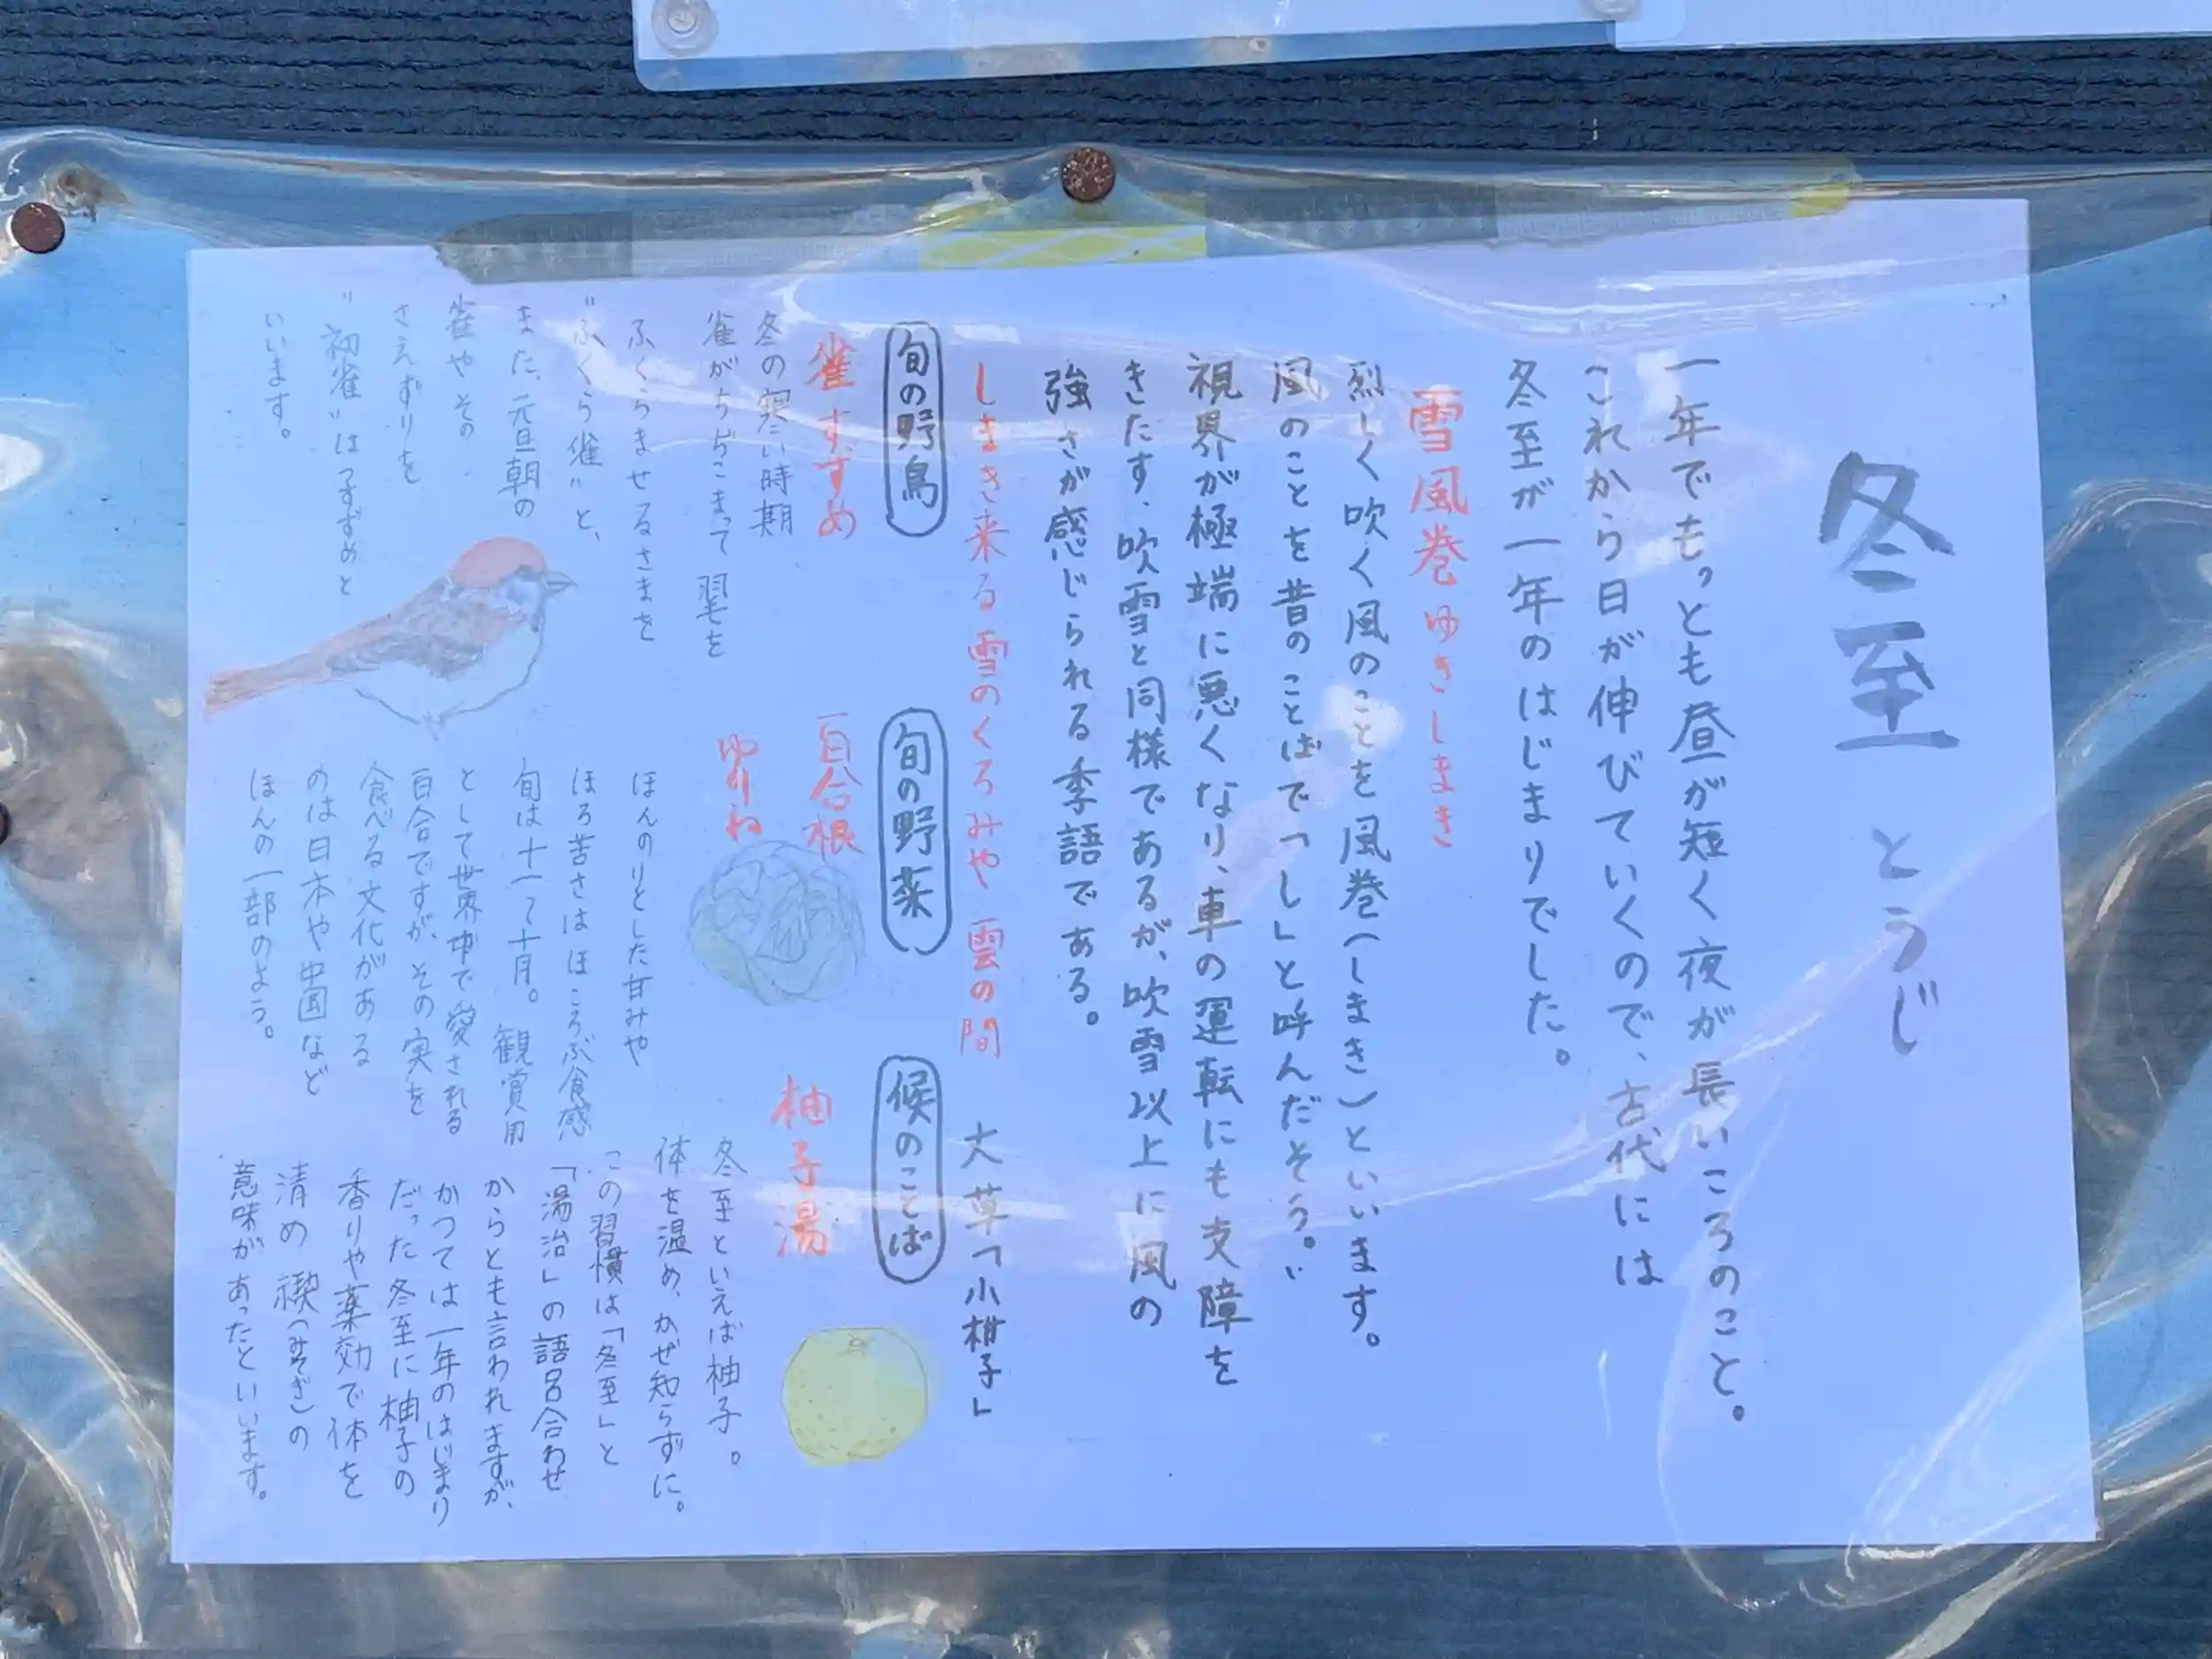 冬至 とうじ
一年でもっとも昼が短く夜が長いころのこと。
これから日が伸びていくので、古代には
冬至が一年のはじまりでした。
雪風巻 ゆきしまき
烈しく吹く風のことを風巻(しまき)といいます。
風のことを昔のことばで「し」と呼んだそう。
視界が極端に悪くなり、車の運転にも支障を
きたす。吹雪と同様であるが、吹雪以上に風の
強さが感じられる季語である。
しまき来る雪のくろみや雲の間 大草「小柑子」
旬の野鳥
雀 すずめ
冬の寒い時期
雀がちぢこまって翼を
ふくらませるさまを
"ふくら雀"と、
また、元旦朝の
雀やその
さえずりを
"初雀"はつすずめと
いいます。
旬の野菜
百合根
ゆりね
ほんのりとした甘みや
ほろ苦さはほころぶ食感
旬は十一〜十月。観賞用
として世界中で愛される
百合ですが、その実を
食べる文化がある
のは日本や中国など
ほんの一部のよう。
候のことば
柚子湯
冬至といえば柚子。
体を温め、かぜ知らずに。
この習慣は「冬至」と
「湯治」の語呂合わせ
からとも言われますが、
かつては一年のはじまり
だった冬至に柚子の
香りや薬効で体を
清め 禊(みそぎ)の
意味があったといいます。